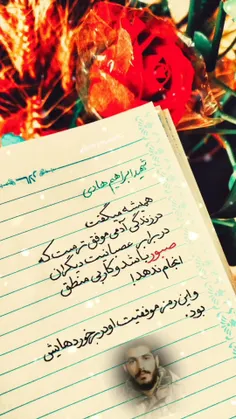 شهید ابراهیم هادی
همیشه میگفت
در زندگی آدمی موفق تر هست که
در برابر عصبانیت دیگران
صبور باشد و کار بی منطق
انجام ندهد!
و این رمز موفقیت او در برخوردهایش
بود.